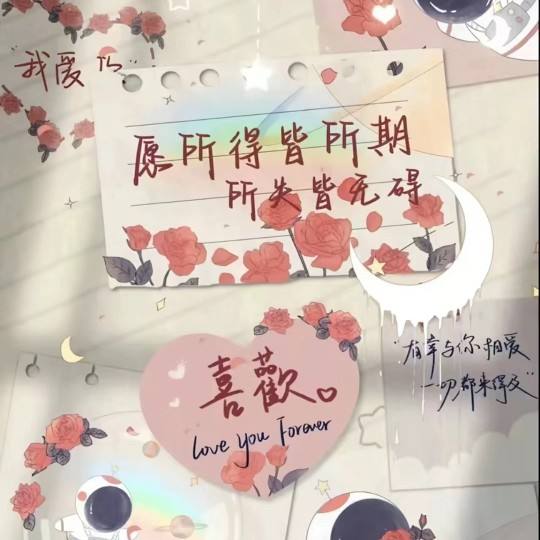 我爱
愿所得皆所期
所失皆无碍
喜歡
Love You Forever
"有幸与你相爱
一切都来得及"